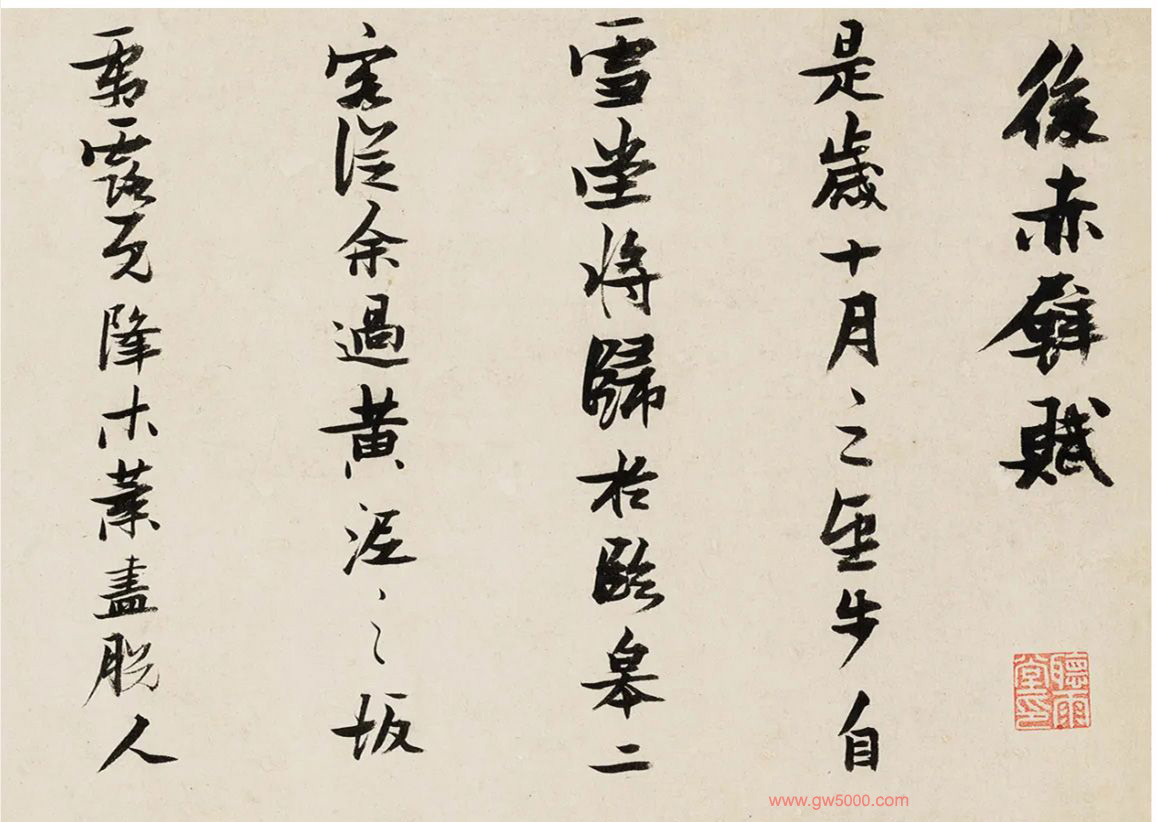 後赤壁賦
是歲十月之望步自
雪堂將歸於臨皋二
客從余過黃泥之坂
霜露既降木葉盡脫人
聽雨堂印
www.gw5000.com